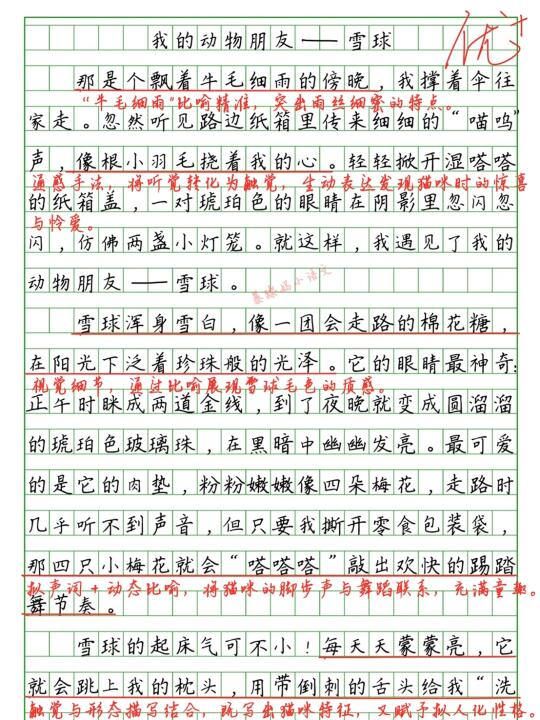 我的动物朋友——雪球
优+
那是个飘着牛毛细雨的傍晚，我撑着伞往
“牛毛细雨”比喻精准，突出雨丝细密的特点。
家走。忽然听见路边纸箱里传来细细的“喵呜”
声，像根小羽毛挠着我的心。轻轻掀开湿嗒嗒
通感手法，将听觉转化为触觉，生动表达发现猫咪时的惊喜
的纸箱盖，一对琥珀色的眼睛在阴影里忽闪忽
与怜爱。
闪，仿佛两盏小灯笼。就这样，我遇见了我的
动物朋友——雪球。
雪球浑身雪白，像一团会走路的棉花糖，
在阳光下泛着珍珠般的光泽。它的眼睛最神奇：
视觉细节，通过比喻展现雪球毛色的质感。
正午时眯成两道金线，到了夜晚就变成圆溜溜
的琥珀色玻璃珠，在黑暗中幽幽发亮。最可爱
的是它的肉垫，粉粉嫩嫩像四朵梅花，走路时
几乎听不到声音，但只要我撕开零食包装袋，
那四只小梅花就会“嗒嗒嗒”敲出欢快的踢踏
拟声词+动态比喻，将猫咪的脚步声与舞蹈联系，充满童趣。
舞节奏。
雪球的起床气可不小！每天天蒙蒙亮，它
就会跳上我的枕头，用带倒刺的舌头给我“洗
触觉与形态描写结合，既写出猫咪特征，又赋予拟人化性格。